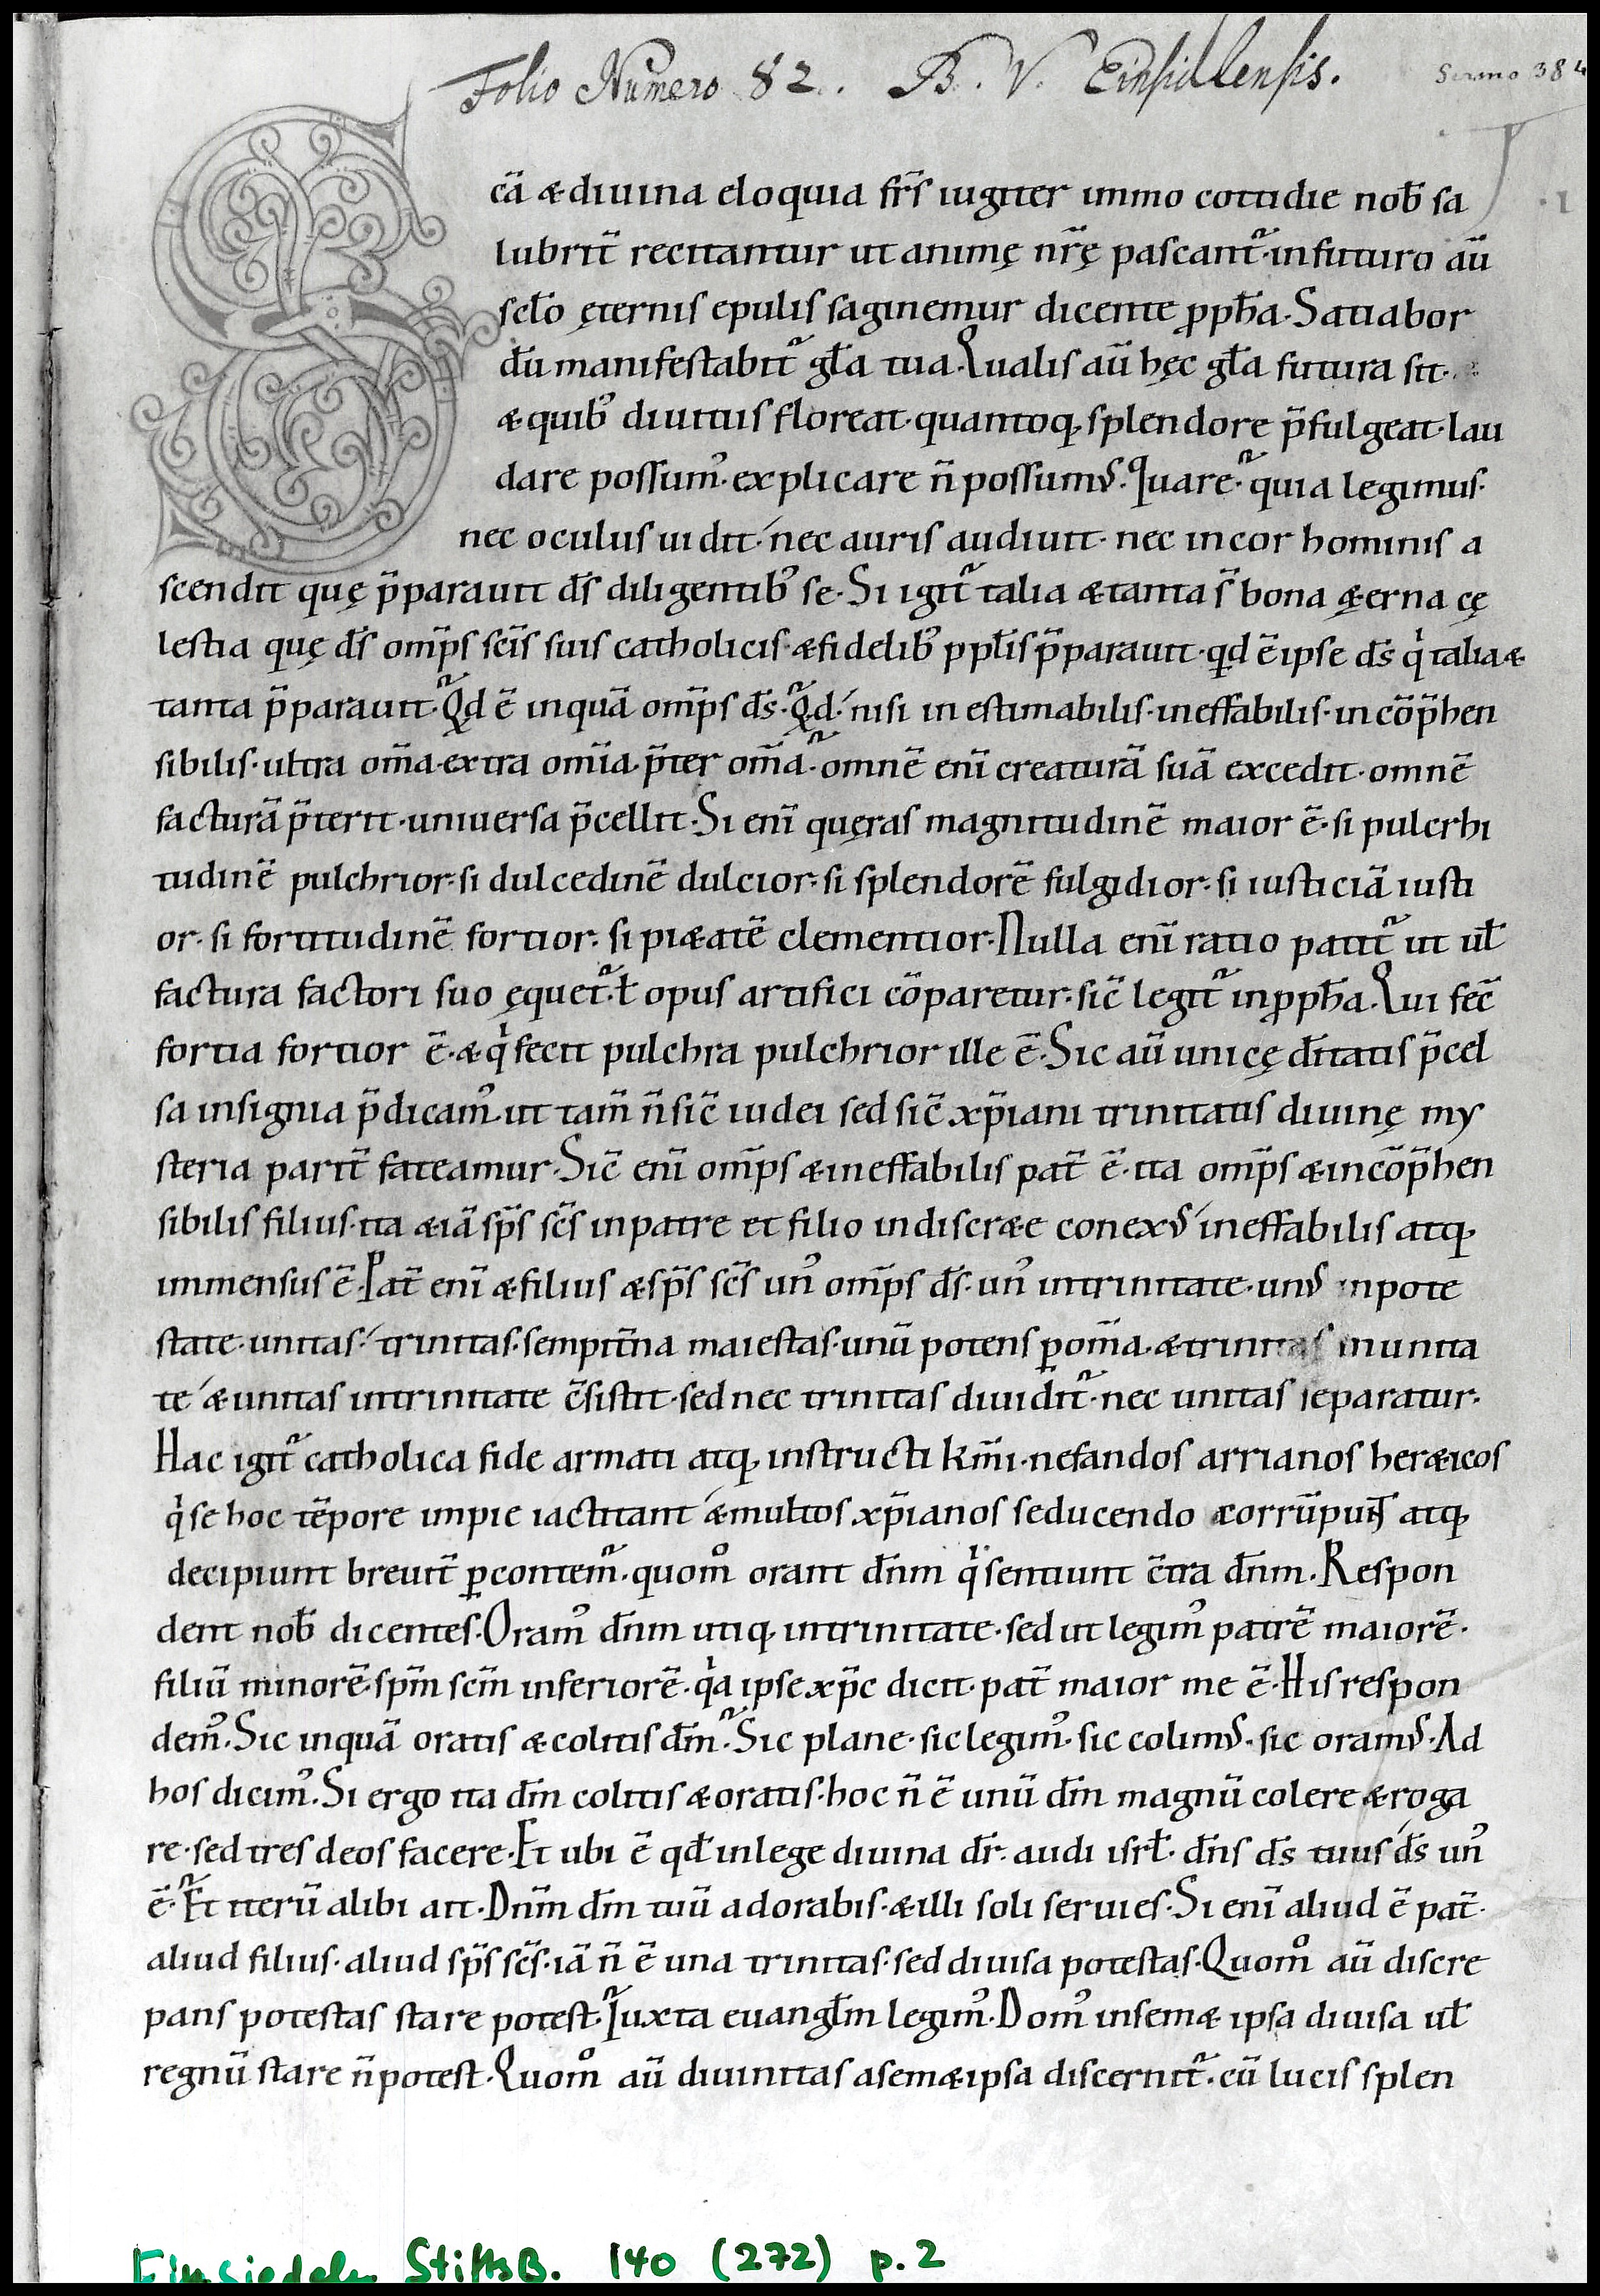 Folio Numero 82. B. V. Einsidlensis.
Sermo 384
.1
S
cā & diuina eloquia fr̄s iugiter immo cottidie nob̄ sa
lubrit̄ recitantur ut animę nr̄ę pascant᷑·in futuro aū
scl̄o ęternis epulis saginemur dicente ꝓph̄a·Satiabor
dū manifestabit᷑ gl̄a tua·Qualis aū hęc gl̄a futura sit·
& quib᾿ diuitiis floreat·quantoq; splendore p̄fulgeat·lau
dare possum᾿·explicare n̄ possumꝰ·Quare·quia legimus·
nec oculus uidit·nec auris audiuit·nec in cor hominis a
scendit quę p̄parauit d̄s diligentib᾿ se·Si igit᷑ talia & tanta s̄ bona ę&erna cę
lestia quę d̄s omp̄s sc̄is suis catholicis·& fidelib᾿ ppl̄is p̄parauit·qd ē ipse d̄s qͥ talia &
tanta p̄parauit·Qd ē inquā omp̄s d̄s·Qd·nisi inestimabilis·ineffabilis·incōp̄hen
sibilis·ultra om̄a·extra om̄ia·p̄ter om̄a·omnē enī creaturā suā excedit·omnē
facturā p̄terit·uniuersa p̄cellit·Si enī quęras magnitudinē maior ē·si pulcrhi
tudinē pulchrior·si dulcedinē dulcior·si splendorē fulgidior·si iusticiā iusti
or·si fortitudinē fortior·si pi&atē clementior·Nulla enī ratio patit᷑ ut ul̄
factura factori suo ęquet᷑·ł opus artifici cōparetur·sic̄ legit᷑ in ꝓph̄a·Qui fec̄
fortia fortior ē·& qͥ fecit pulchra pulchrior ille ē·Sic aū unicę d̄itatis p̄cel
sa insignia p̄dicam᾿·ut tam̄ n̄ sic̄ iudei sed sic̄ xp̄iani trinitatis diuinę my
steria parit̄ fateamur·Sic̄ enī omp̄s & ineffabilis pat̄ ē·ita omp̄s & incōp̄hen
sibilis filius·ita & iā sp̄s sc̄s in patre et filio indiscr&e conexꝰ ineffabilis atq;
immensus ē·Pat̄ enī & filius & sp̄s sc̄s un᾿ omp̄s d̄s·un᾿ in trinitate·unꝰ in pote
state·unitas·trinitas·sempit̄na maiestas·unū potens ꝑ om̄a·& trinitas in unita
te & unitas in trinitate c̄sistit·sed nec trinitas diuidit᷑·nec unitas separatur·
Hac igit᷑ catholica fide armati atq; instructi km̄i·nefandos arrianos her&icos
qͥ se hoc tēpore impie iactitant & multos xp̄ianos seducendo & corrūpunt atq;
decipiunt breuit̄ ꝑcontem᷑·quom̊ orant dn̄m qͥ sentiunt c̄tra dn̄m·Respon
dent nob̄ dicentes·Oram᾿ dn̄m utiq; in trinitate·sed ut legim᾿ patrē maiorē·
filiū minorē·sp̄m sc̄m inferiorē·qͥa ipse xp̄c dicit·pat̄ maior me ē·His respon
dem᾿·Sic inquā oratis & colitis dm̄·Sic plane·sic legim᾿·sic colimꝰ·sic oramꝰ·Ad
hos dicim᾿·Si ergo ita dm̄ colitis & oratis·hoc n̄ ē unū dm̄ magnū colere & roga
re·sed tres deos facere·Et ubi ē qd̄ in lege diuina dr̄·audi isrl̄·dn̄s d̄s tuus d̄s un᾿
ē·Et iterū alibi ait·Dnm̄ dm̄ tuū adorabis·& illi soli seruies·Si enī aliud ē pat̄·
aliud filius·aliud sp̄s sc̄s·iā n̄ ē una trinitas·sed diuisa potestas·Quom̊ aū discre
pans potestas stare potest·Iuxta euangl̄m legim᾿·Dom᾿ in sem& ipsa diuisa ul̄
regnū stare n̄ potest·Quom̊ aū diuinitas a sem&ipsa discernit᷑·cū lucis splen
Einsiedeln StiftsB. 140 (272) p. 2